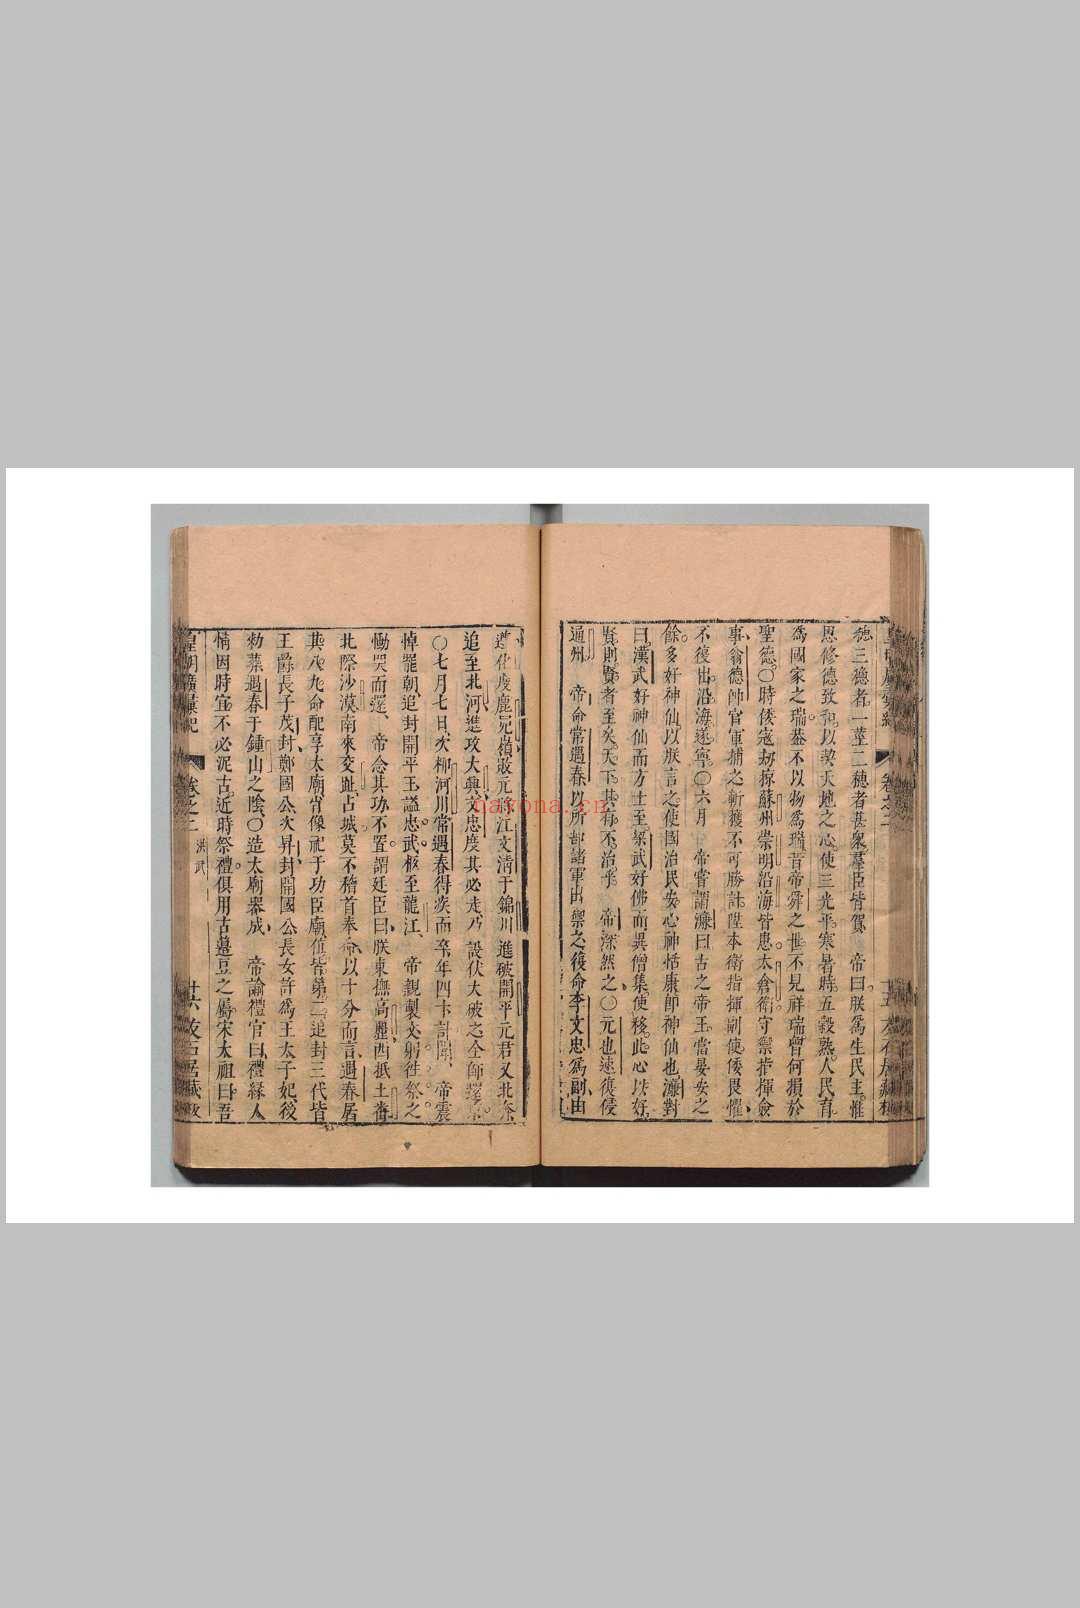 穗三穗者一莖二穗者甚衆羣臣皆賀　帝曰朕爲生民主惟
思修德致和以契天地之心使三光平寒暑時五穀熟人民育
爲國家之瑞葢不以物爲瑞昔帝舜之世不見祥瑞曾何損於
聖德〇時倭寇刼掠蘇州崇明沿海皆患太倉衛守禦指揮僉
事翁德帥官軍捕之斬獲不可勝計陞本衛指揮副使倭畏懼
不復出沿海遂寧〇六月　帝嘗謂濂曰古之帝王當晏安之
餘多好神仙以朕言之使國治民安心神恬康卽神仙也濂對
曰漢武好神仙而方士至梁武好佛而異僧集使移此心以好
賢則賢者至矣天下其有不治乎　帝深然之〇元也速復侵
通州　帝命常遇春以所部諸軍出禦之後命李文忠爲副由
遵化度鹿兒嶺敗元將江文淸于錦川進破開平元君又北奔
追至北河進攻大興文忠度其必走乃設伏大破之全師還
〇七月七日次柳河川常遇春得疾而卒年四十訃聞　帝震
悼罷朝追封開平王謚忠武柩至龍江　帝親製文躬徃祭之
慟哭而還　帝念其功不置謂廷臣曰朕東撫高麗西抵土畨
北際沙漠南來交趾占城莫不稽首奉命以十分而言遇春居
其八九命配享太廟肖像祀于功臣廟位皆第二追封三代皆
王爵長子茂封鄭國公次昇封開國公長女許爲王太子妃後
勑葬遇春于鍾山之陰〇造太廟器成　帝諭禮官曰禮縁人
情因時宜不必泥古近時祭禮俱用古籩豆之屬宋太祖曰吾
皇明廣彚紀　卷之二　洪武　十六　友石居藏板